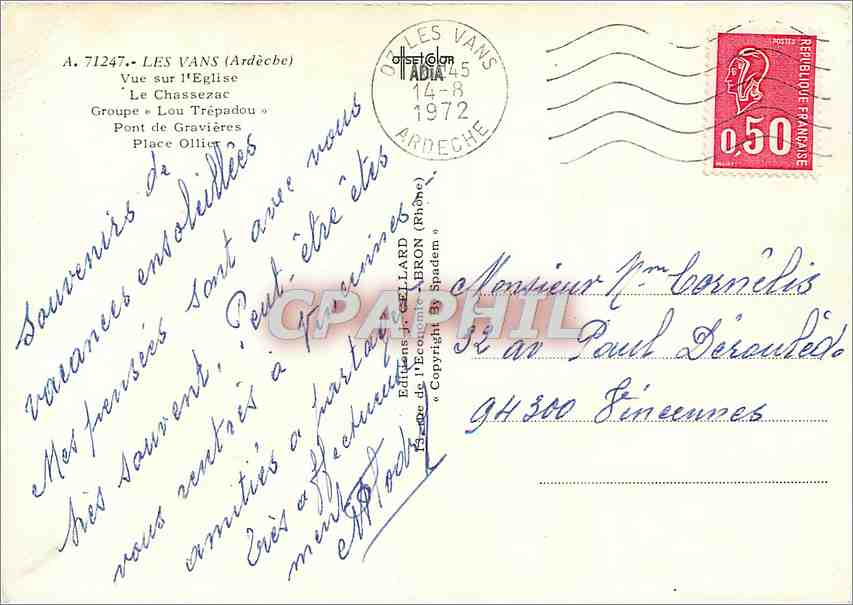 A. 71247.- LES VANS (Ardèche)
Vue sur l'Eglise
Le Chassezac
Groupe « Lou Trépadou »
Pont de Gravières
Place Ollier
offsetcolor
ADIA
07 LES VANS
45
14-8
1972
ARDECHE
POSTES
REPUBLIQUE FRANÇAISE
0,50
Souvenirs de
vacances ensoleillées
Mes pensées sont avec vous
très souvent. Peut-être êtes
vous rentrés à Vincennes -
amitiés à partager
très affectueuse
ment
Editions J. CELLARD
de l'Economie - BRON (Rhône)
« Copyright By Spadem »
CPAPHIL
Monsieur Mme Cornélis
32 av Paul Déroulède
94300 Vincennes